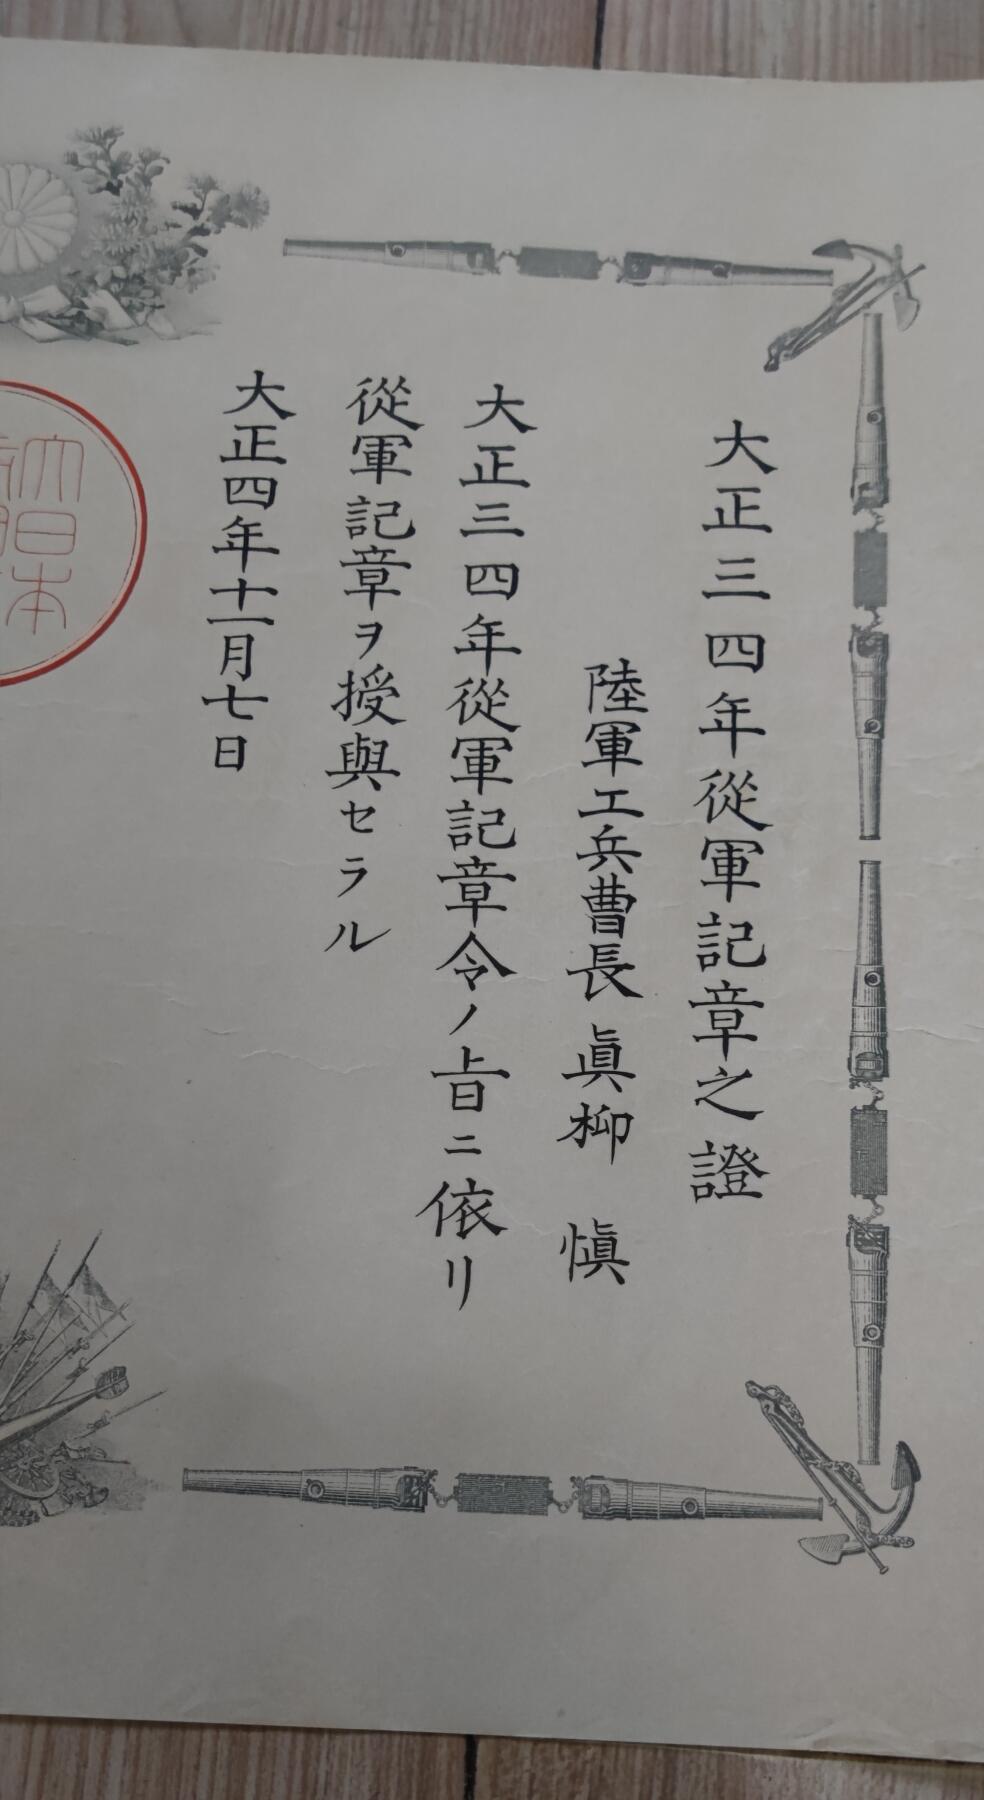 大正三四年從軍記章之證
陸軍工兵曹長 眞柳 愼
大正三四年從軍記章令ノ旨ニ依リ
從軍記章ヲ授與セラル
大正四年十一月七日
大日本